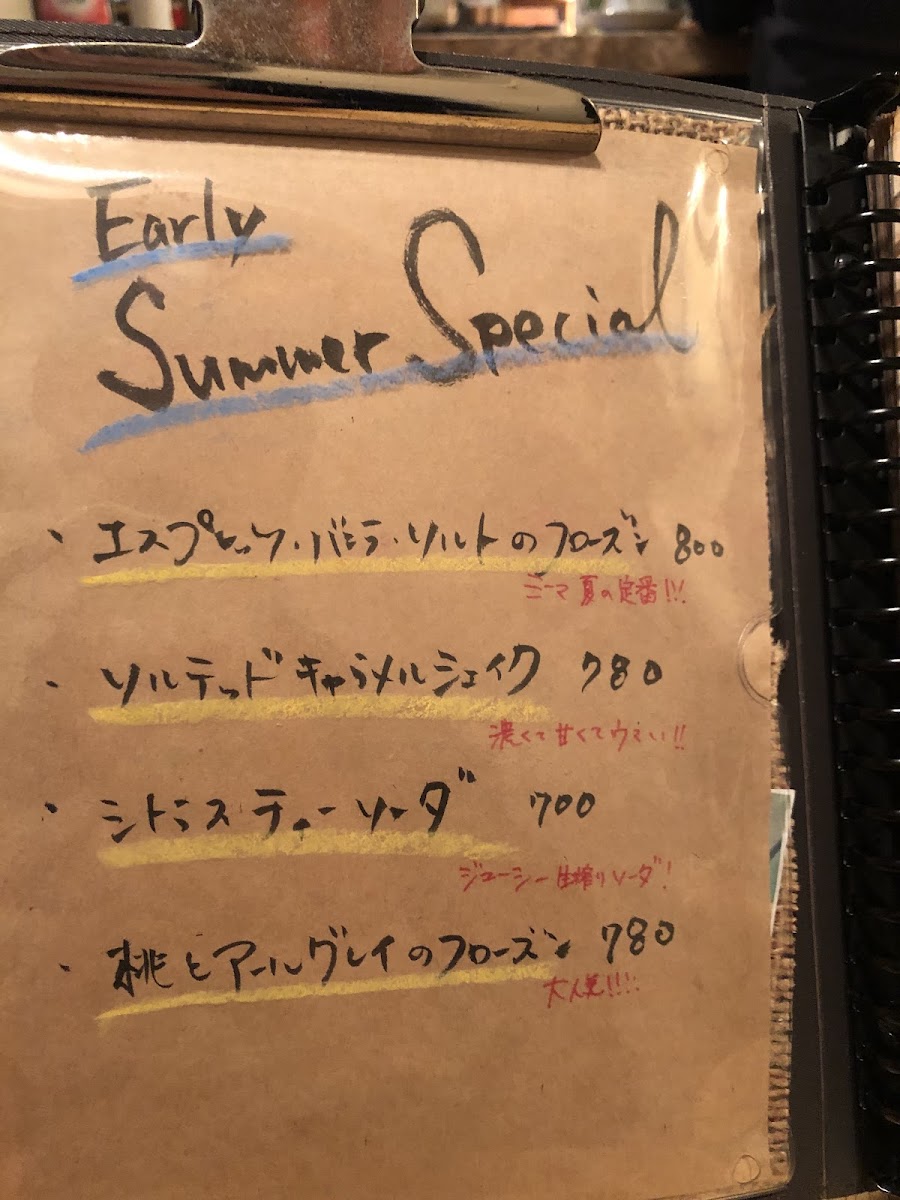 Early
Summer Special
・エスプレッソ・バニラ・ソルトのフローズン 800
ニーマ 夏の定番!!!
・ソルテッドキャラメルシェイク 780
濃くて甘くてウマい!!
・シトラスティーソーダ 700
ジューシー生搾りソーダ!
・桃とアールグレイのフローズン 780
大人気!!!!